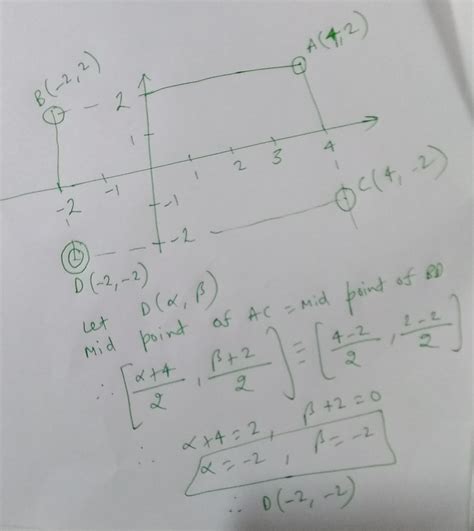 A(4,2)
B(-2,2)
2
1
-2 -1 1 2 3 4
-1
C(4,-2)
-2
D(-2,-2)
Let D(α, β)
Mid point of AC = Mid point of BD
∴ [α+4/2 , β+2/2] = [4-2/2 , 2-2/2]
∴ α+4=2 , β+2=0
α=-2 , β=-2
∴ D(-2,-2)